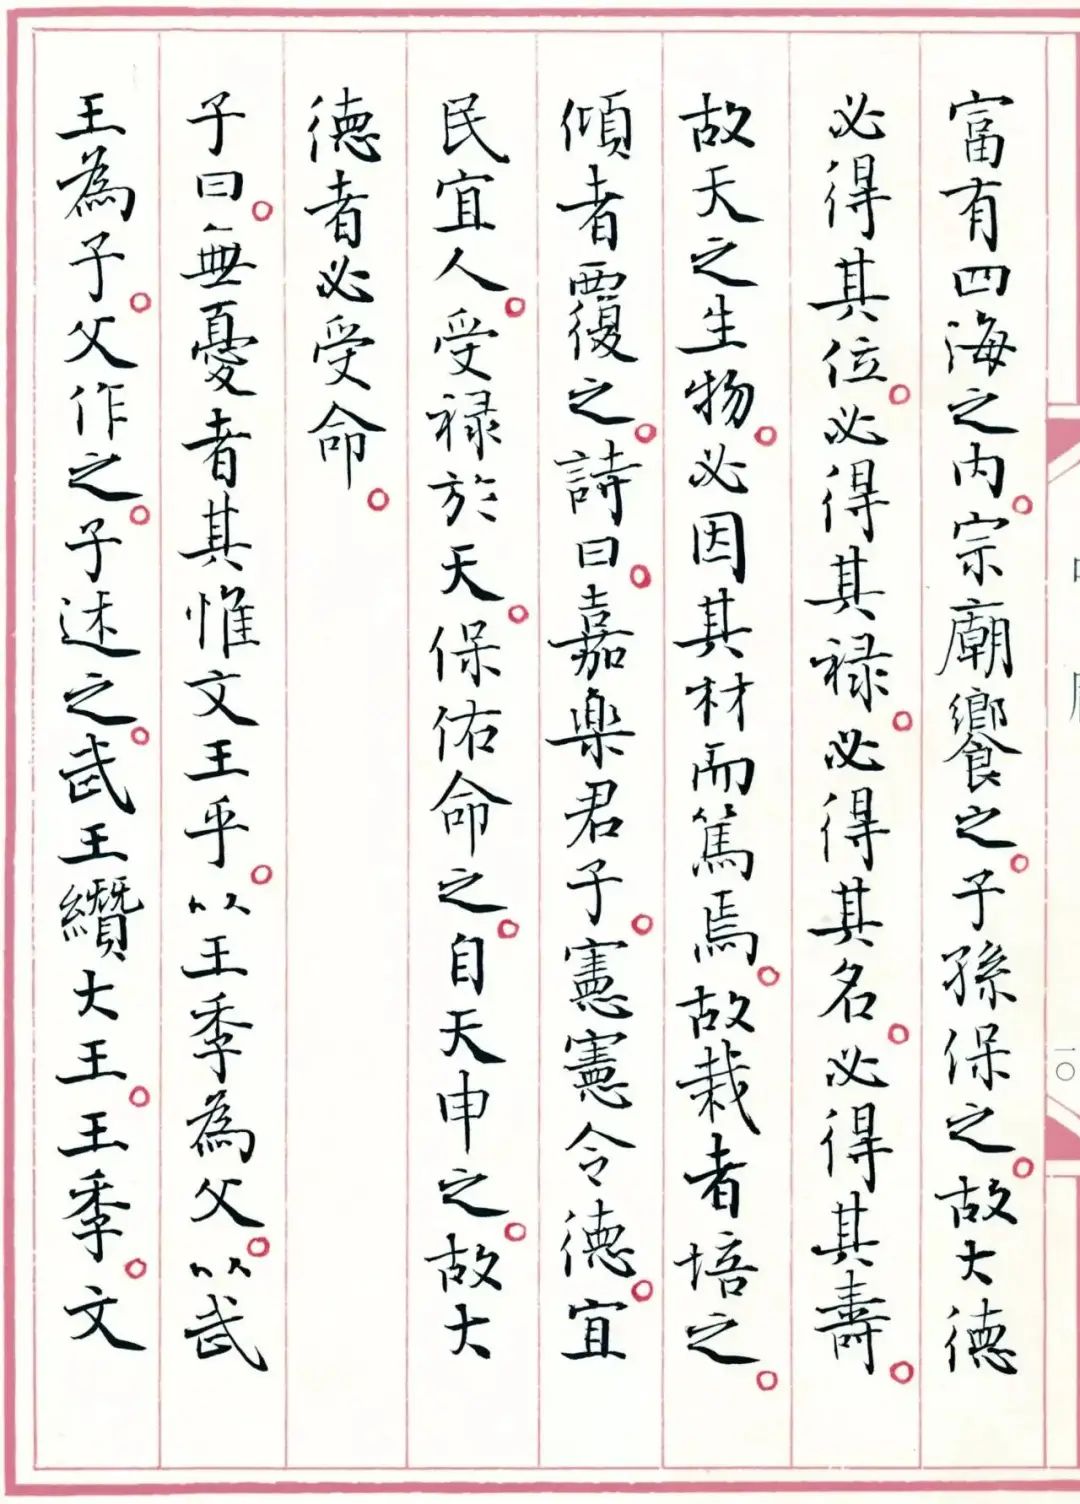 富有四海之内。宗廟饗之。子孫保之。故大德
必得其位。必得其禄。必得其名。必得其壽。
故天之生物。必因其材而篤焉。故栽者培之。
傾者覆之。詩曰。嘉樂君子。憲憲令德。宜
民宜人。受禄於天。保佑命之。自天申之。故大
德者必受命。
子曰。無憂者其惟文王乎。以王季為父。以武
王為子。父作之。子述之。武王纘大王。王季。文
一〇